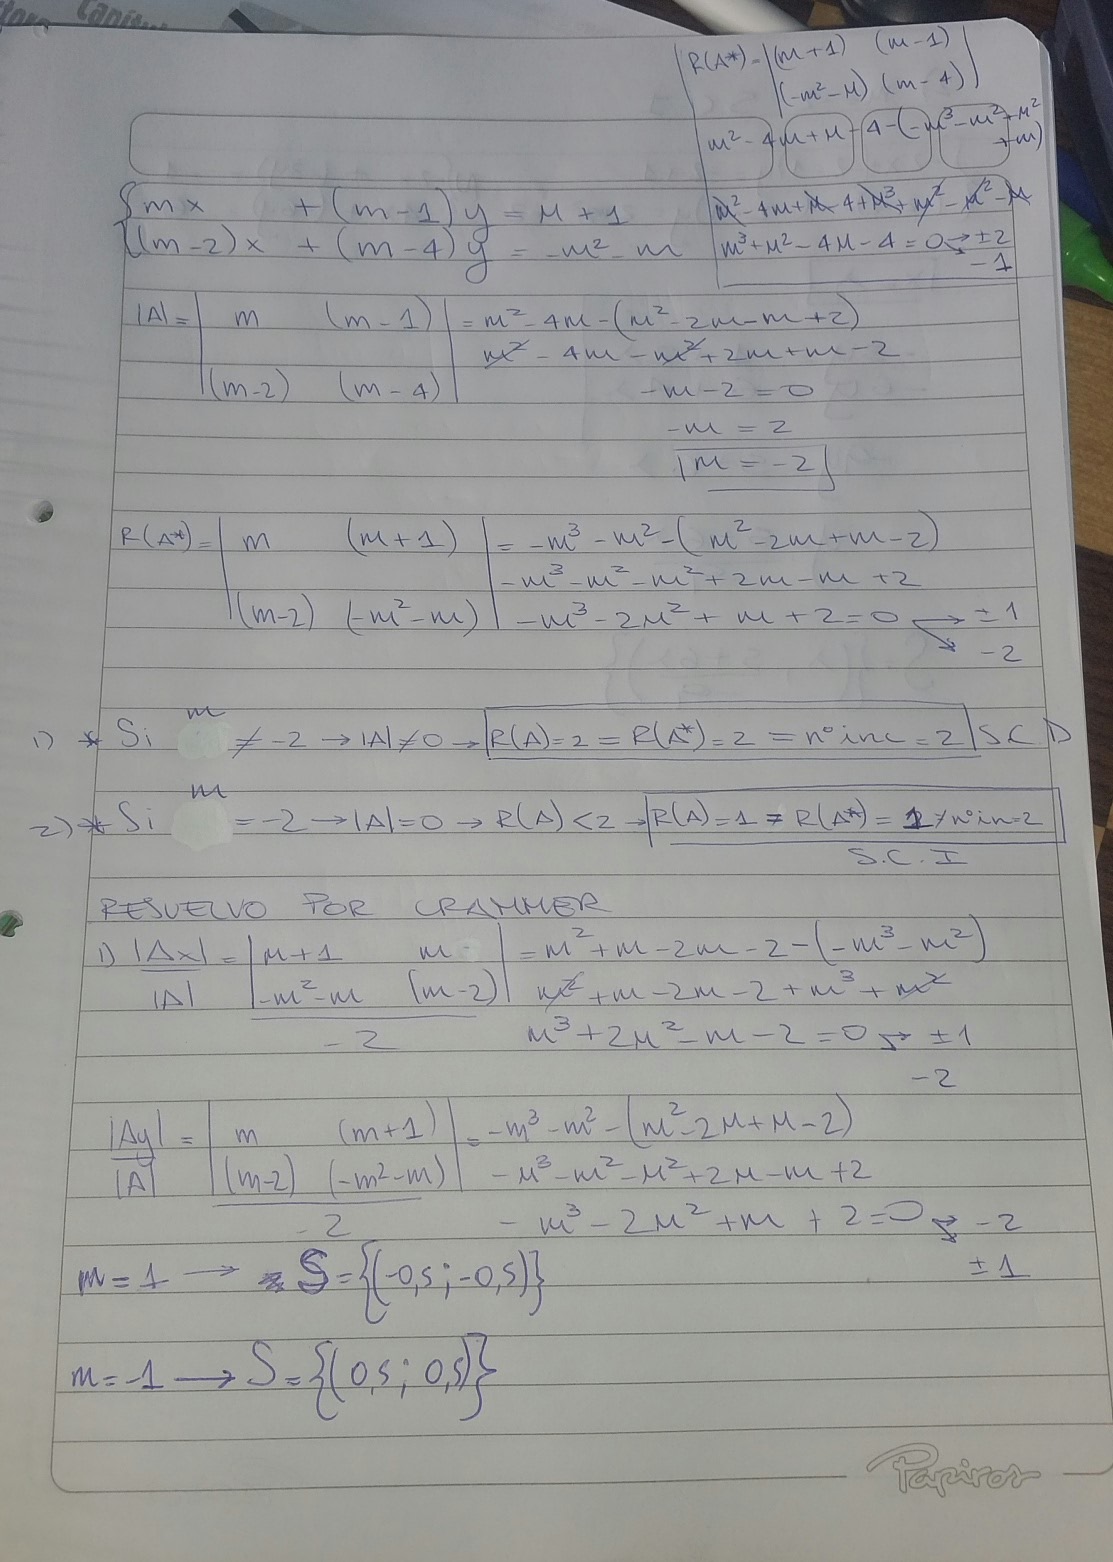 Capítu
R(A*)= |(m+1) (m-1)|
|(-m²-m) (m-4)|
m²-4m+m-4-(-m³-m²+m²+m)
m²-4m+m-4+m³+m²-m²-m
m³+m²-4m-4=0 → ±2
-1
{mx + (m-1)y = m+1
{(m-2)x + (m-4)y = -m²-m
|A|= | m (m-1) | = m²-4m-(m²-2m-m+2)
m²-4m-m²+2m+m-2
|(m-2) (m-4)| -m-2=0
-m=2
m=-2
R(A*)= | m (m+1) | = -m³-m²-(m²-2m+m-2)
-m³-m²-m²+2m-m+2
|(m-2) (-m²-m)| -m³-2m²+m+2=0 → ±1
-2
1) * Si m ≠ -2 → |A|≠0 → R(A)=2=R(A*)=2=nºinc=2 S.C.D
2) * Si m = -2 → |A|=0 → R(A)<2 → R(A)=1=R(A*)=1≠nºin=2
S.C.I
RESUELVO POR CRAMMER
1) |Ax| = |m+1 m| = m²+m-2m-2-(-m³-m²)
|A| |-m²-m (m-2)| m²+m-2m-2+m³+m²
-2 m³+2m²-m-2=0 → ±1
-2
|Ay| = | m (m+1)| = -m³-m²-(m²-2m+m-2)
|A| |(m-2) (-m²-m)| -m³-m²-m²+2m-m+2
-2 -m³-2m²+m+2=0 → -2
±1
m=1 → S={(-0,5;-0,5)}
m=-1 → S={(0,5;0,5)}
Papiros